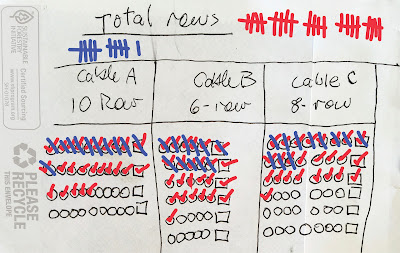 Total rows
Cable A
10 Row
Cable B
6-row
Cable C
8-row
SUSTAINABLE
FORESTRY
INITIATIVE
Certified Sourcing
www.sfiprogram.org
PLEASE
RECYCLE
THIS ENVELOPE